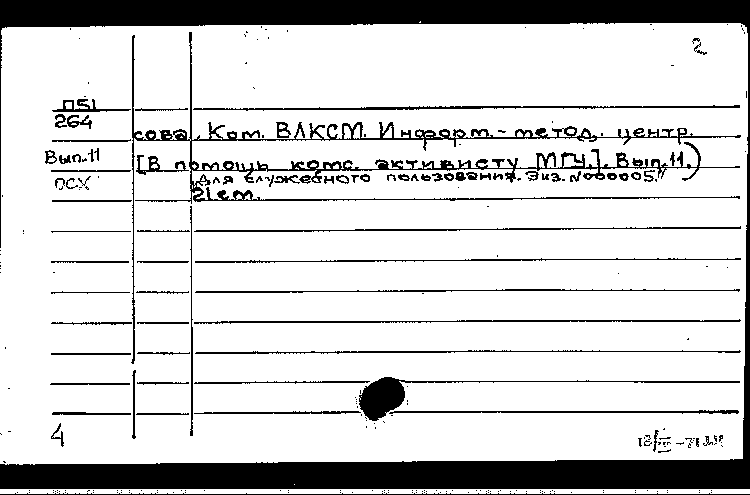 2
П51
264
сова. Ком. ВЛКСМ. Информ.-метод. центр.
Вып.11 [В помощь комс. активисту МГУ]. Вып.11.)
ОСХ „Для служебного пользования. Экз. №000005."
21 см.
4